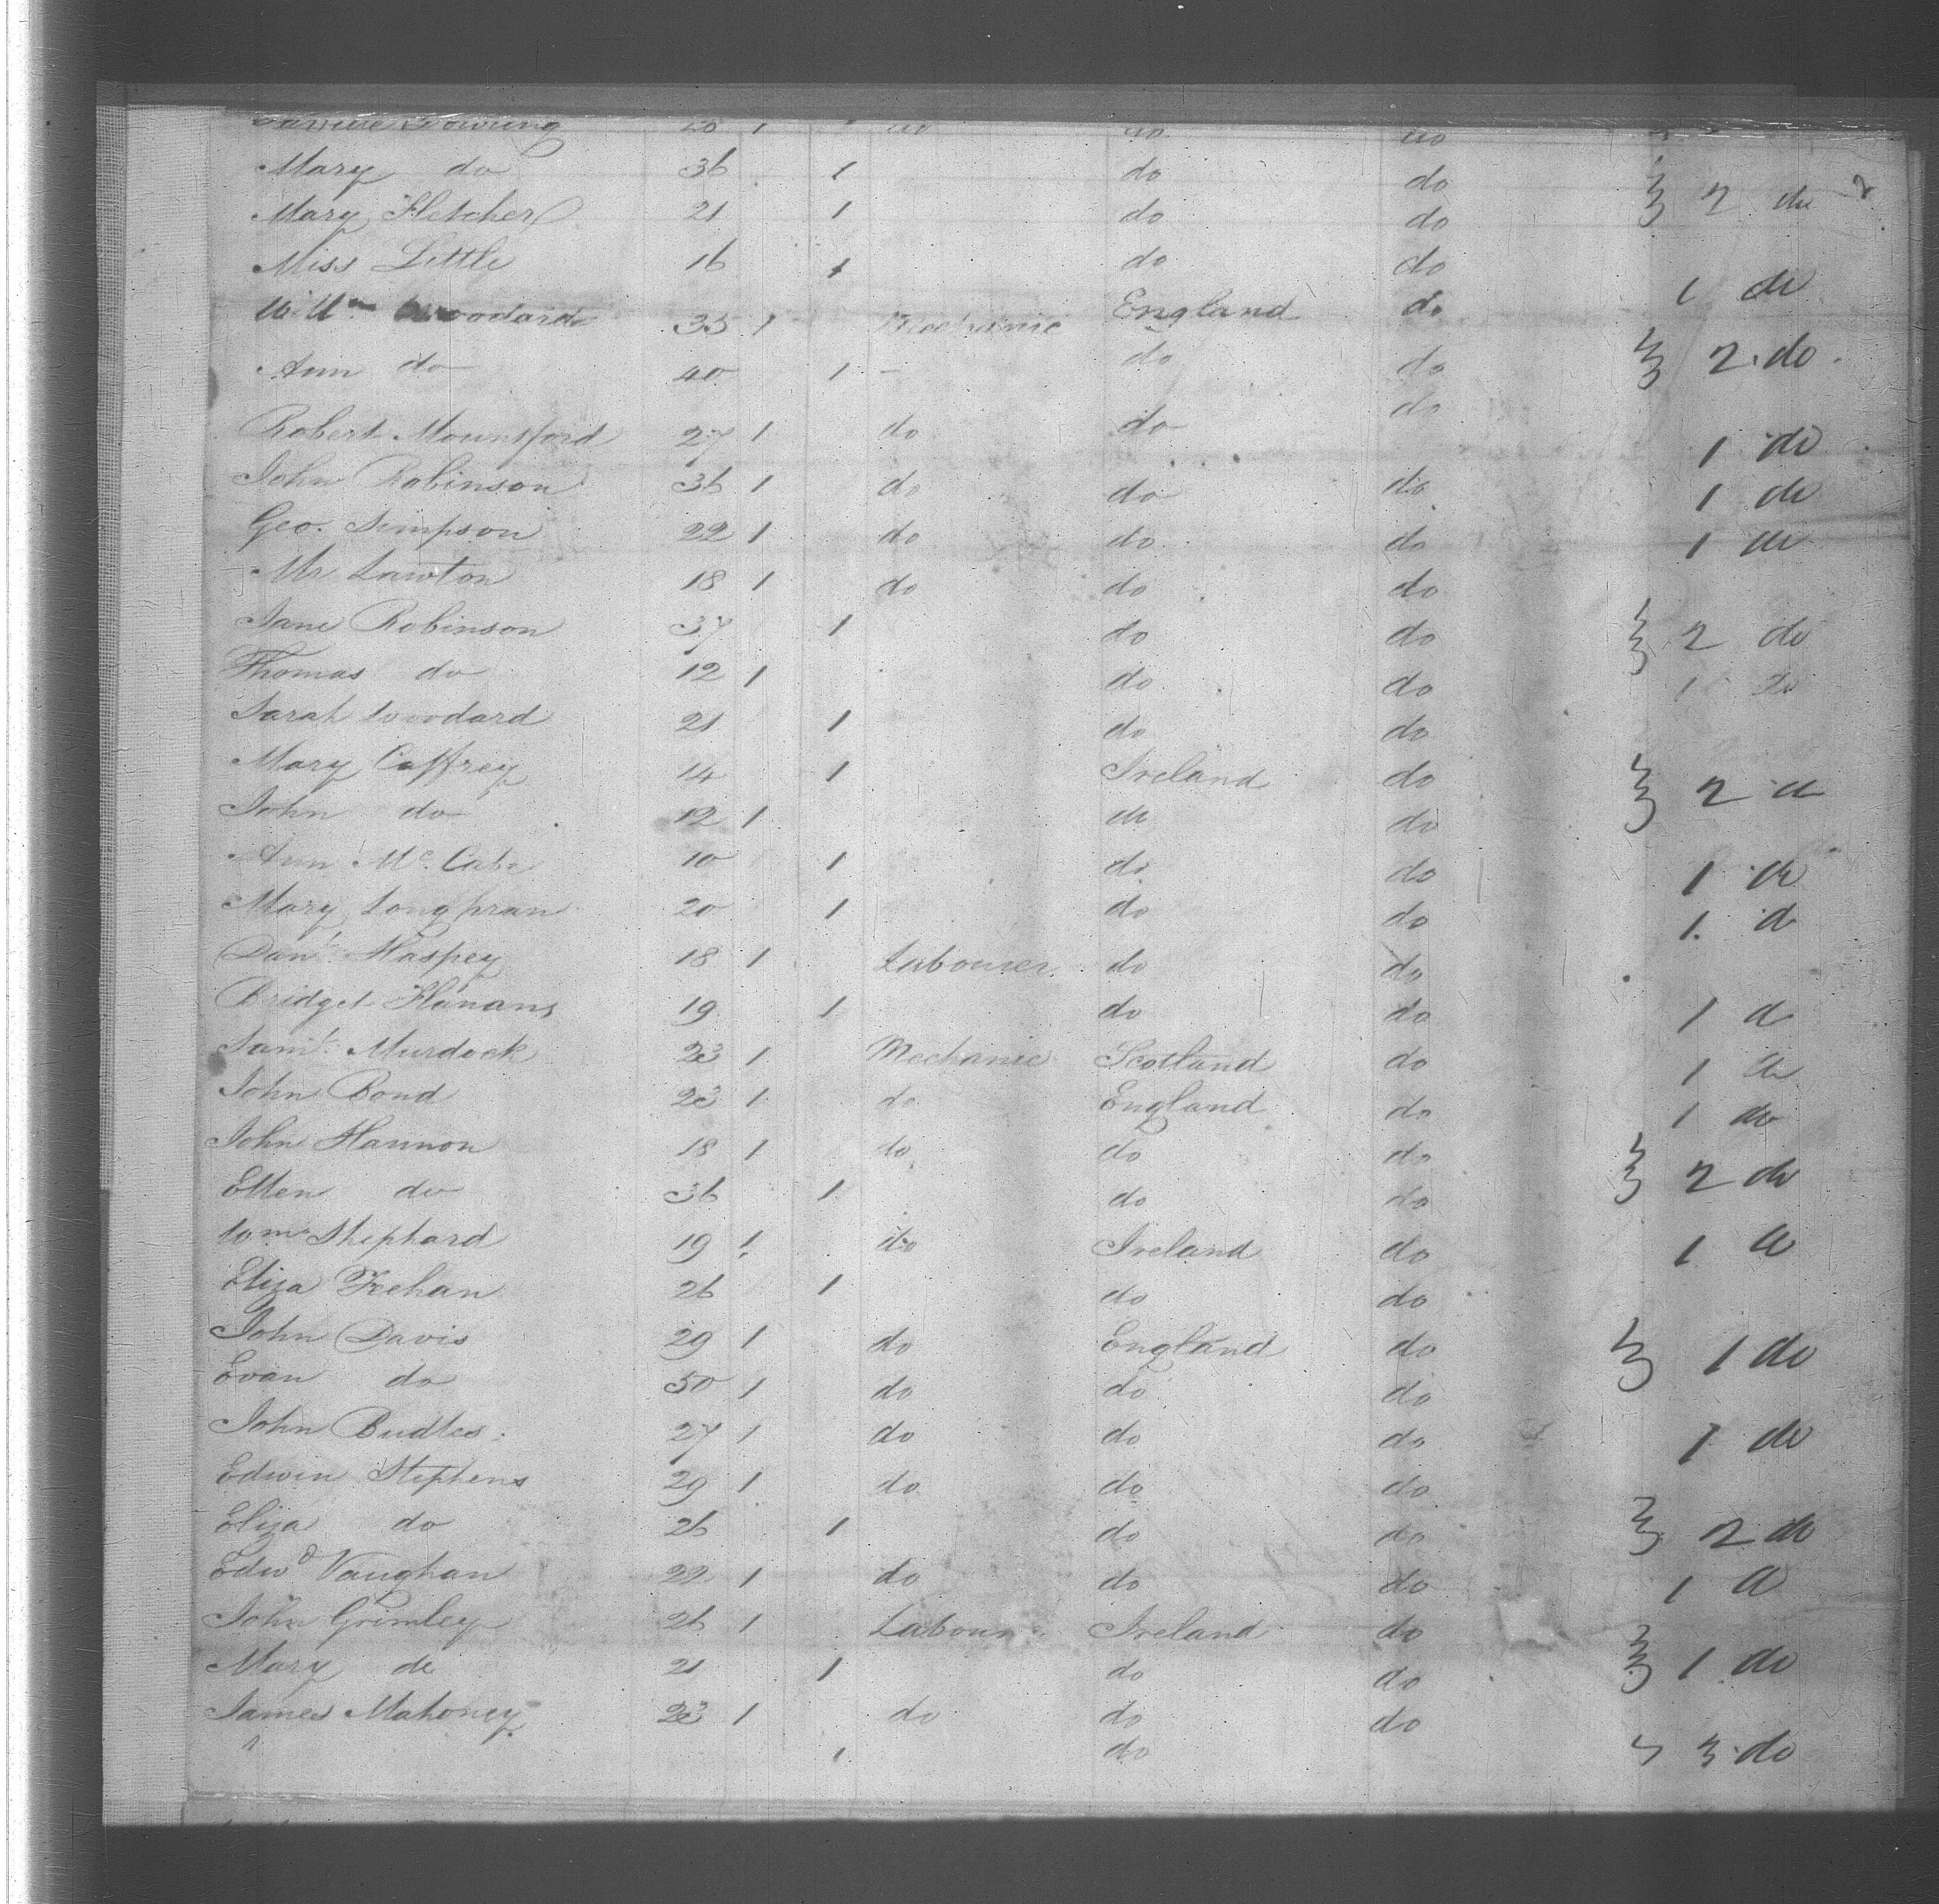 Dowling 1 do do do
Mary do 36 1 do do
Mary Fletcher 21 1 do do 2 do
Miss Little 16 1 do do 1 do
Willm Woodard 35 1 Mechanic England do
Ann do 40 1 - do do 2 do
Robert Mountford 27 1 do do do 1 do
John Robinson 36 1 do do do 1 do
Geo. Simpson 22 1 do do do 1 do
Mr Lawton 18 1 do do do
Jane Robinson 37 1 do do 2 do
Thomas do 12 1 do do 1 do
Sarah Woodard 21 1 do do
Mary Caffrey 14 1 Ireland do 2 do
John do 12 1 do do
Ann Mc. Cabe 10 1 do do 1 do
Mary 20 1 do do 1 do
Danl. Haspey 18 1 Labourer do do
Bridget Hanans 19 1 do do 1 do
Saml. Murdock 23 1 Mechanic Scotland do 1 do
John Bond 23 1 do England do 1 do
John Hannon 18 1 do do do
Ellen do 36 1 do do 2 do
Wm Shephard 19 1 do Ireland do 1 do
Eliza Feehan 26 1 do do
John Davis 29 1 do England do 1 do
Evan do 50 1 do do do
John Budtes 27 1 do do do 1 do
Edwin Stephens 29 1 do do do
Eliza do 26 1 do do 2 do
Edwd Vaughan 22 1 do do do 1 do
John Grimley 26 1 Labour Ireland do
Mary do 21 1 do do 1 do
James Mahoney 23 1 do do do
1 do 3 do